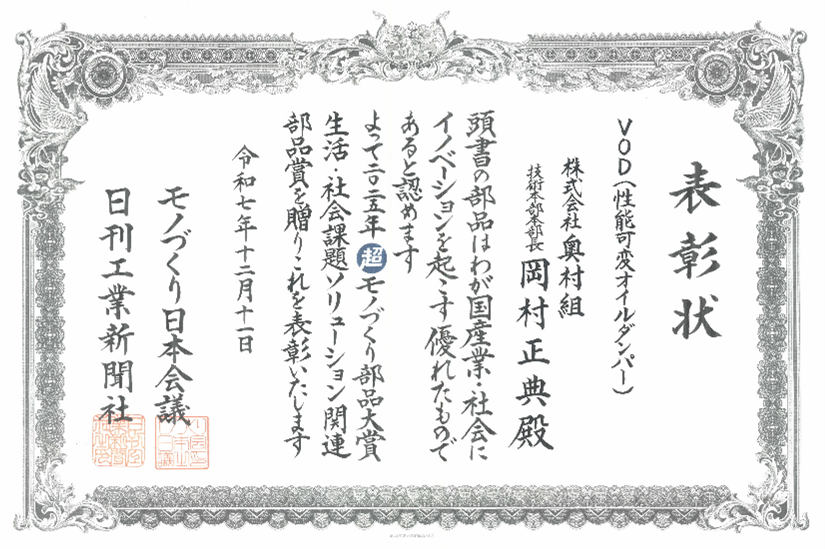 表彰状
VOD(性能可変オイルダンパー)
株式会社奥村組
技術本部本部長 岡村正典殿
頭書の部品はわが国産業・社会に
イノベーションを起こす優れたもので
あると認めます
よって二〇二五年超モノづくり部品大賞
生活・社会課題ソリューション関連
部品賞を贈りこれを表彰いたします
令和七年十二月十一日
モノづくり日本会議
日刊工業新聞社